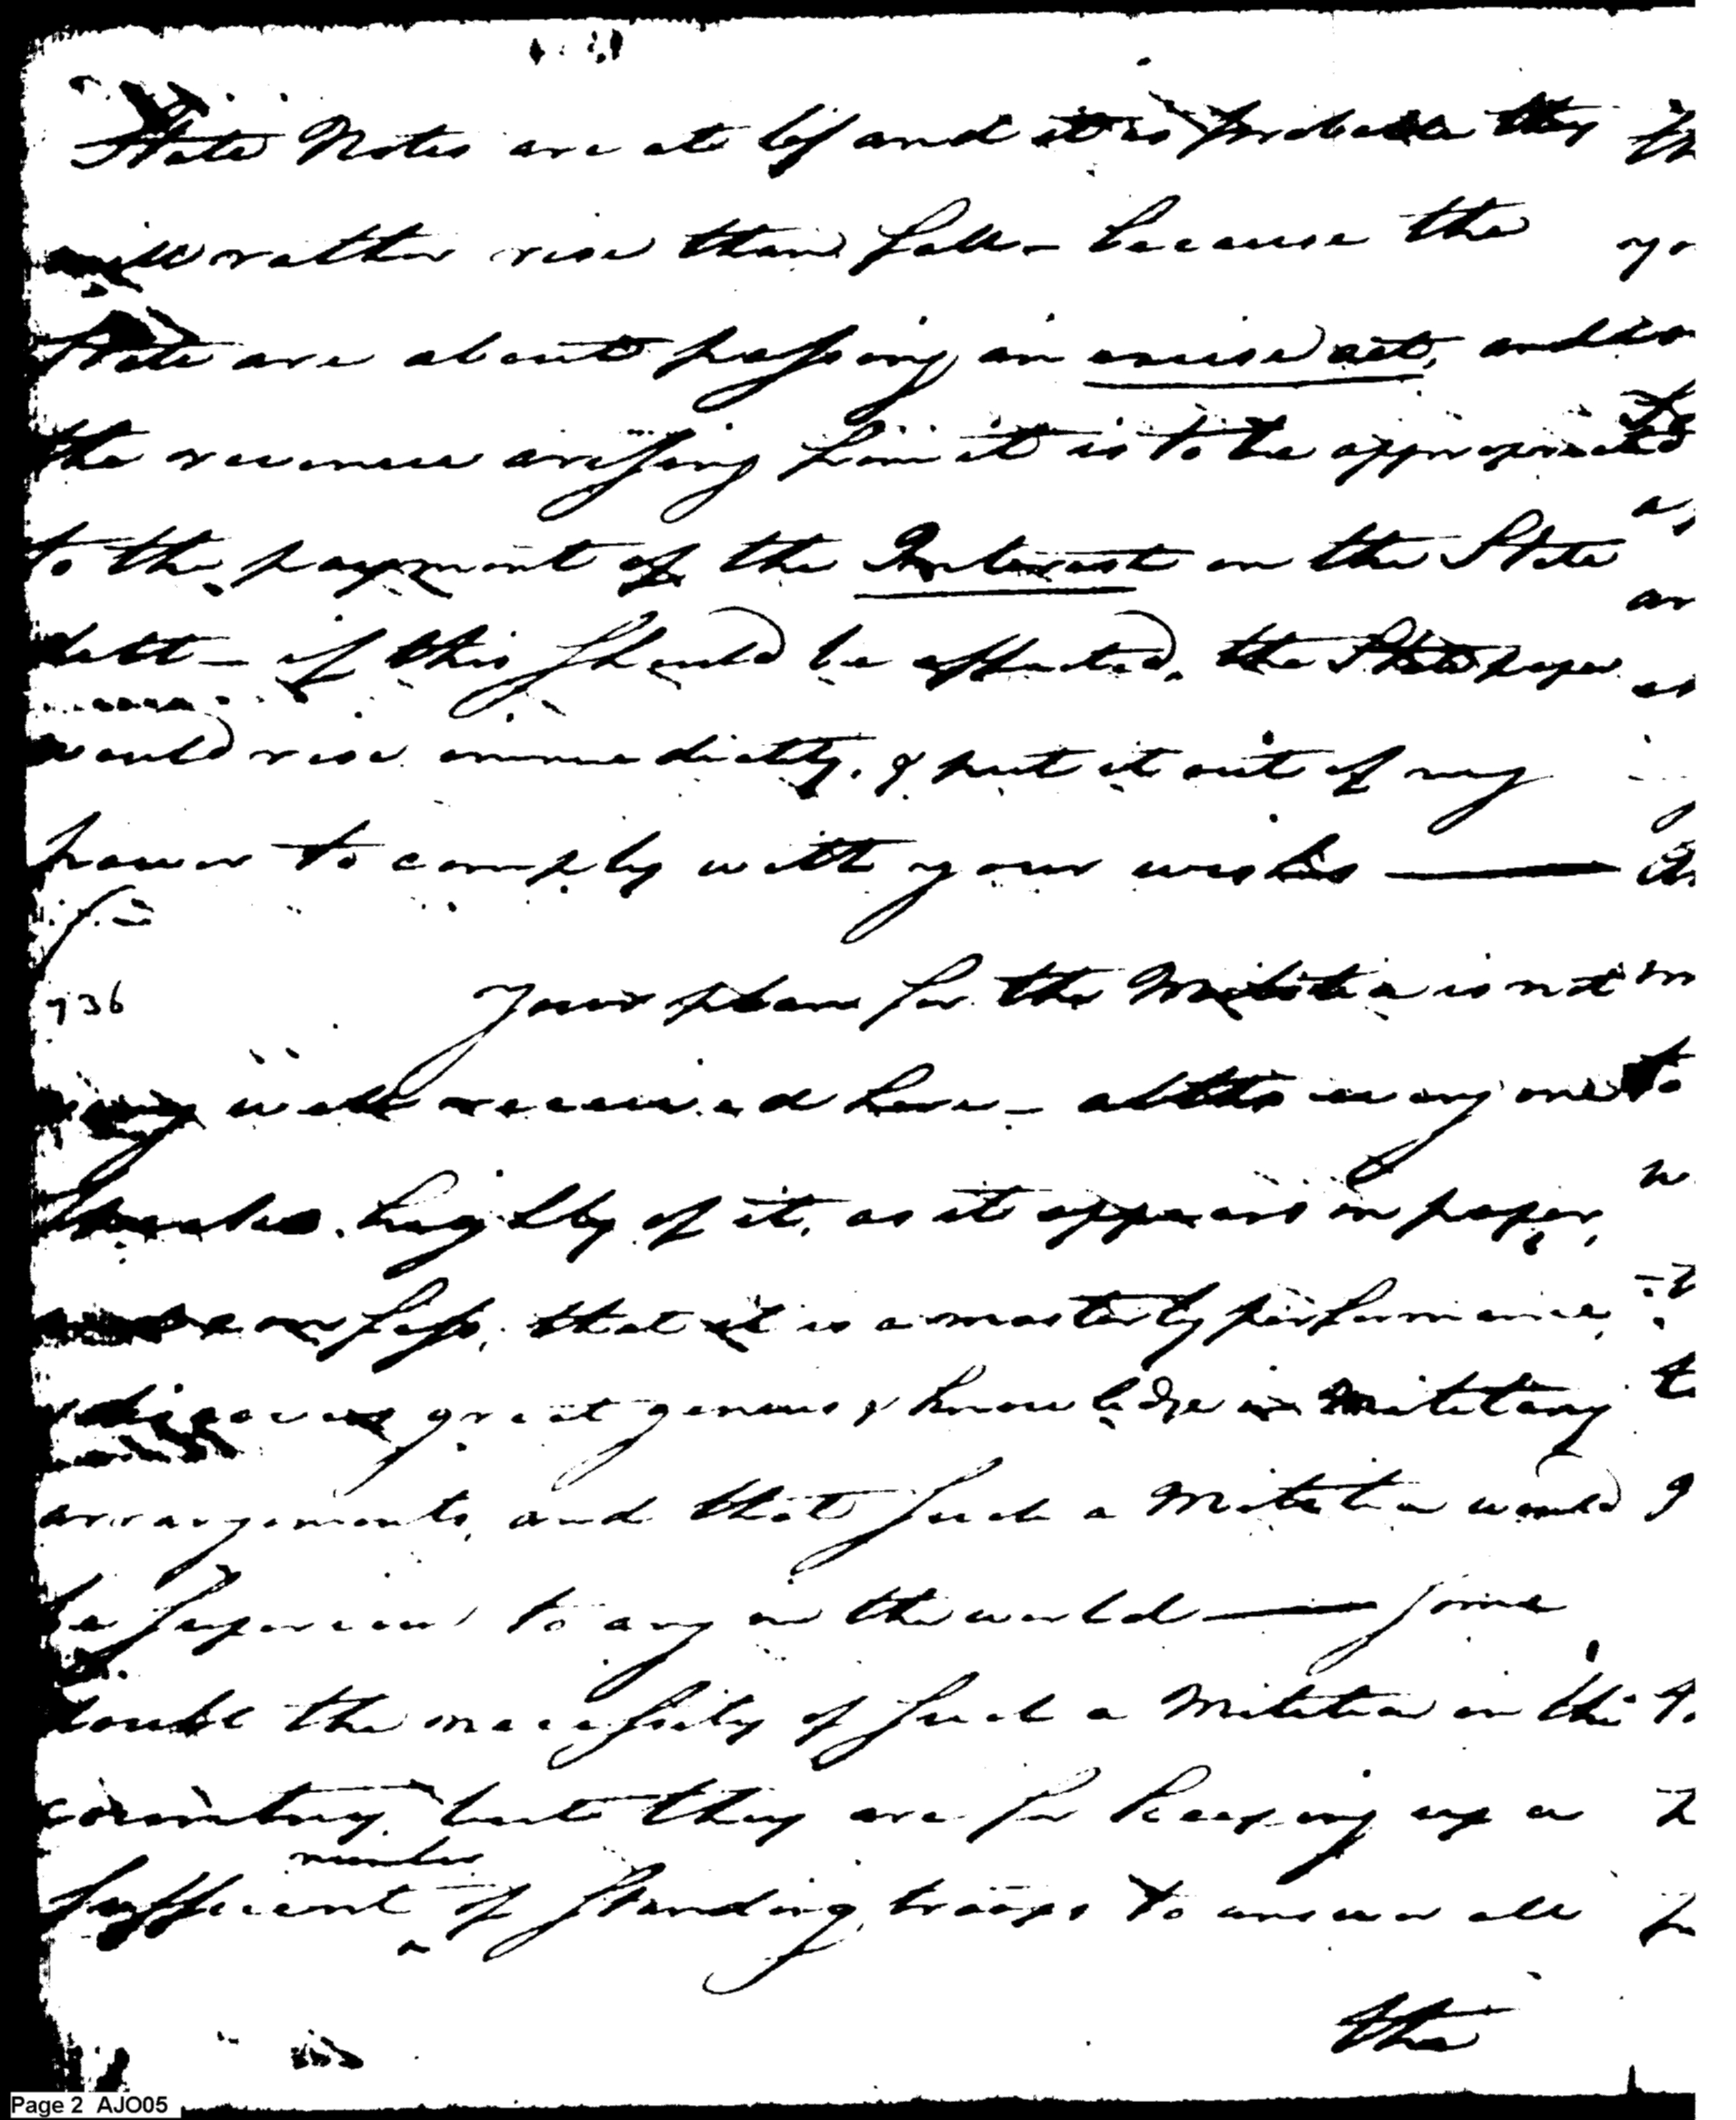 State Notes are at 6/ and it is probable they
will rather rise than fall – because the
State are about passing an excise act, and
the revenue arissing from it is to be appropriated
to the payment of the Interest on the State
debt – if this should be effected, the State paper
would rise immediatly, & put it out of my
power to comply with your wishes ———
736
Your plan for the Militia is not
very well received here – altho every one
speaks highly of it, as it appears on paper,
confess, that it is a masterly performance,
& discovers great genius & knowledge in Militiary
arrangements, and that such a Militia would
be superiour to any in the world —— some
doubt the necessity of such a Militia in this
country, but they are for keeping up a
number
sufficient of standing troops to answer all
the
Page 2 AJO05